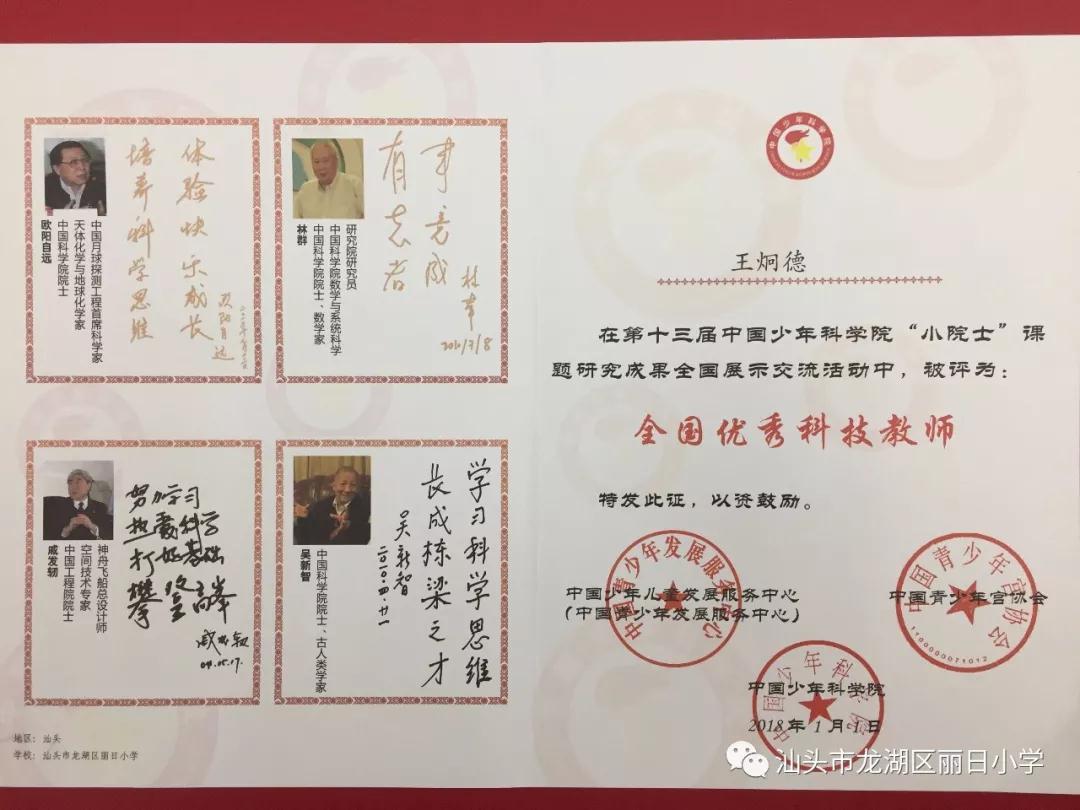 体验快乐成长
培养科学思维
欧阳自远
中国月球探测工程首席科学家
天体化学与地球化学家
中国科学院院士
欧阳自远
事竟成
有志者
林群
2010/7/8
研究院研究员
中国科学院数学与系统科学
中国科学院院士、数学家
林群
努力学习
热爱科学
打好基础
攀登高峰
戚发轫
09.05.17.
神舟飞船总设计师
空间技术专家
中国工程院院士
戚发轫
学习科学思维
长成栋梁之才
吴新智
二〇一〇.四.廿一
中国科学院院士、古人类学家
吴新智
地区：汕头
学校：汕头市龙湖区丽日小学
中国少年科学院
王炯德
在第十三届中国少年科学院“小院士”课
题研究成果全国展示交流活动中，被评为：
全国优秀科技教师
特发此证，以资鼓励。
中国青少年发展服务中心
中国少年儿童发展服务中心
（中国青少年发展服务中心）
中国青少年宫协会
中国青少年宫协会
1100000071012
中国少年科学院
中国少年科学院
2018年1月1日
汕头市龙湖区丽日小学